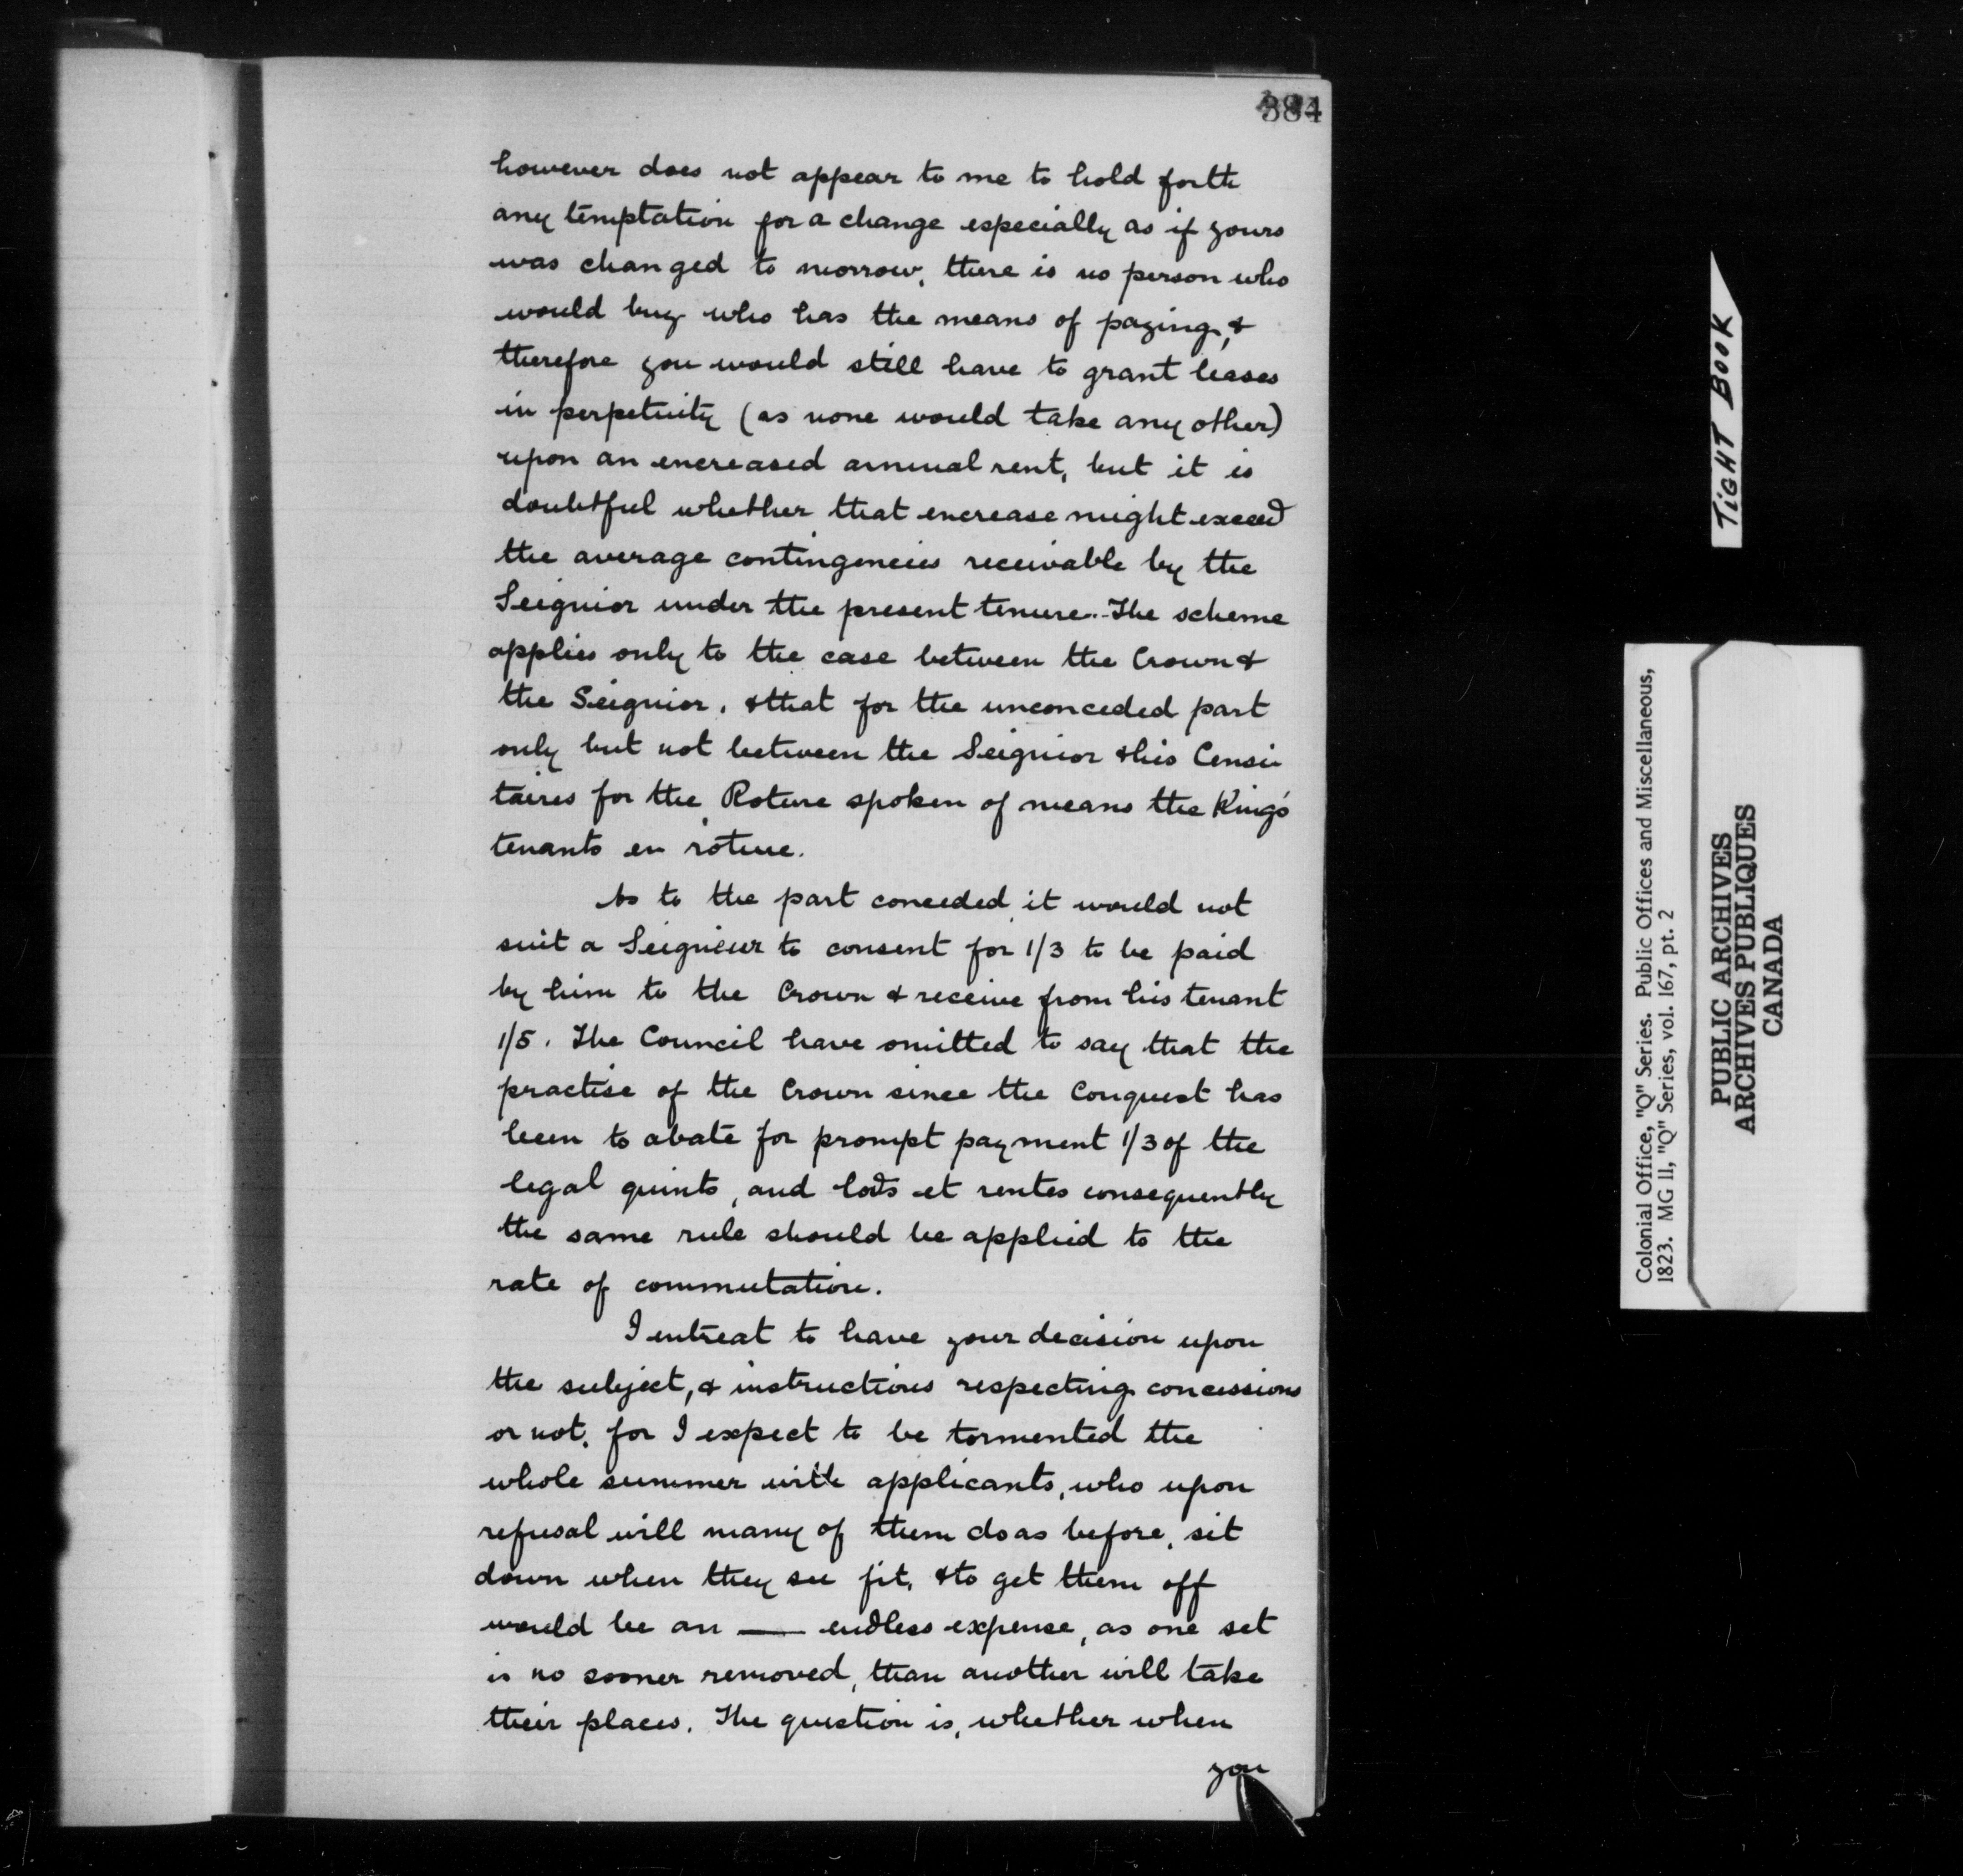 384
however does not appear to me to hold forth
any temptation for a change especially as if yours
was changed to morrow, there is no person who
would buy who has the means of paying, &
therefore you would still have to grant leases
in perpetuity (as none would take any other)
upon an encreased annual rent, but it is
doubtful whether that encrease might exceed
the average contingencies receivable by the
Seignior under the present tenure. The scheme
applies only to the case between the Crown &
the Seignior, & that for the unconceded part
only but not between the Seignior & his Censi
taires for the Roture spoken of means the King's
tenants en roture.
As to the part conceded it would not
suit a Seigneur to consent for 1/3 to be paid
by him to the Crown & receive from his tenant
1/5. The Council have omitted to say that the
practise of the Crown since the Conquest has
been to abate for prompt payment 1/3 of the
legal quints, and lods et rentes consequently
the same rule should be applied to the
rate of commutation.
I entreat to have your decision upon
the subject, & instructions respecting concessions
or not, for I expect to be tormented the
whole summer with applicants, who upon
refusal will many of them do as before, sit
down when they see fit, & to get them off
would be an — endless expense, as one set
is no sooner removed, than another will take
their places. The question is, whether when
you
TIGHT BOOK
Colonial Office, "Q" Series. Public Offices and Miscellaneous,
1823. MG 11, "Q" Series, vol. 167, pt. 2
PUBLIC ARCHIVES
ARCHIVES PUBLIQUES
CANADA